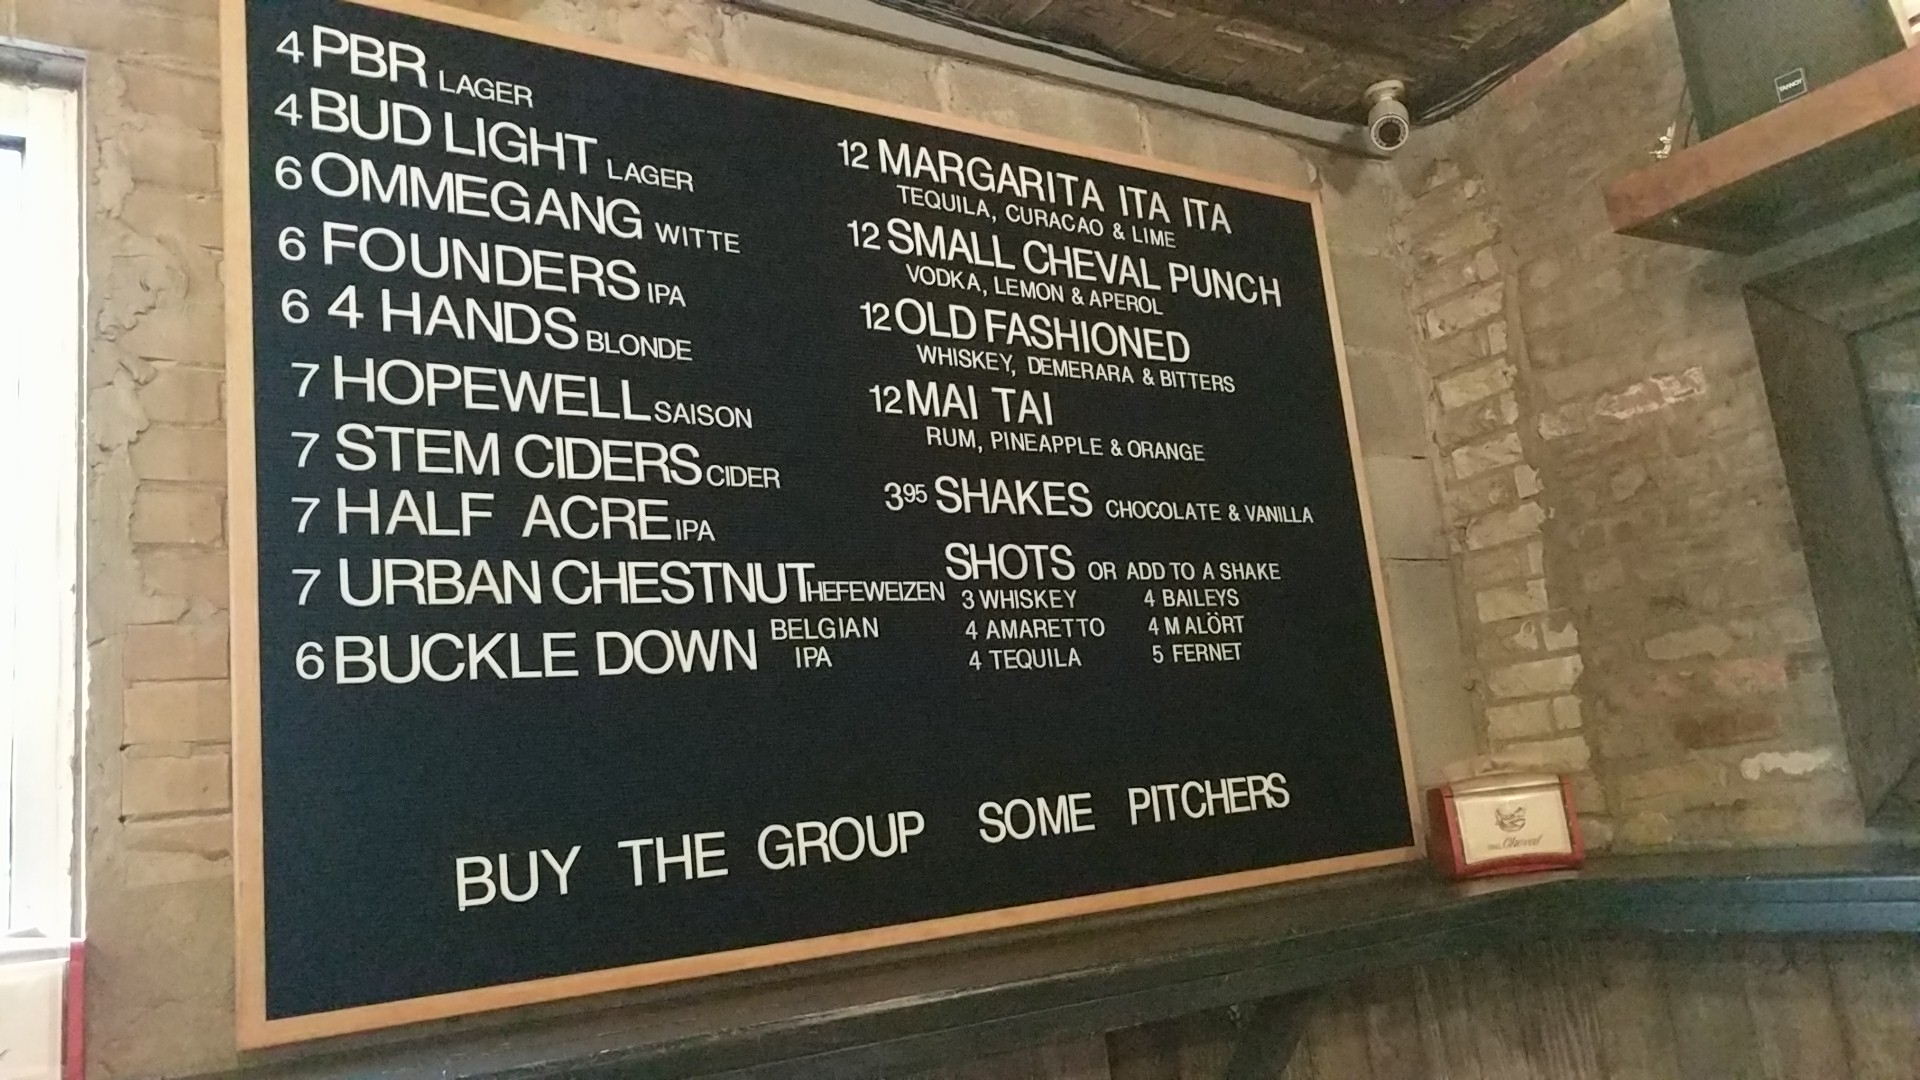 4 PBR LAGER
4 BUD LIGHT LAGER
6 OMMEGANG WITTE
6 FOUNDERS IPA
6 4 HANDS BLONDE
7 HOPEWELL SAISON
7 STEM CIDERS CIDER
7 HALF ACRE IPA
7 URBAN CHESTNUT HEFEWEIZEN
6 BUCKLE DOWN BELGIAN
IPA
12 MARGARITA ITA ITA
TEQUILA, CURACAO & LIME
12 SMALL CHEVAL PUNCH
VODKA, LEMON & APEROL
12 OLD FASHIONED
WHISKEY, DEMERARA & BITTERS
12 MAI TAI
RUM, PINEAPPLE & ORANGE
395 SHAKES CHOCOLATE & VANILLA
SHOTS OR ADD TO A SHAKE
3 WHISKEY 4 BAILEYS
4 AMARETTO 4 MALÖRT
4 TEQUILA 5 FERNET
BUY THE GROUP SOME PITCHERS
TANNOY
Cheval